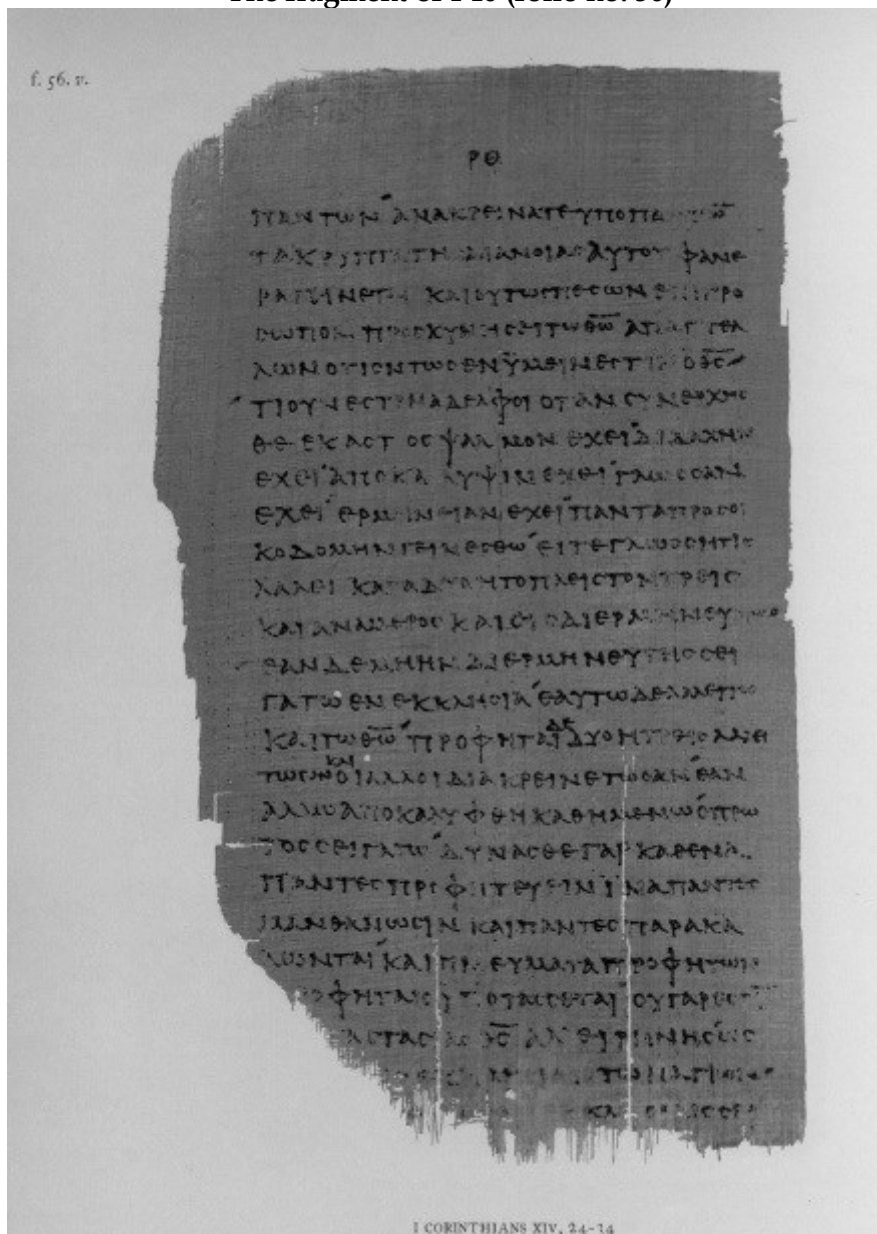 The fragment of P46 (folio no. 56)
f. 56. v.
ΡΘ
ΠΑΝΤΩΝ ΑΝΑΚΡΕΙΝΑΤΕ ΥΠΟ
ΤΑ ΚΡΥΠΤΑ ΤΗ ΔΙΑΝΟΙΑΣ ΑΥΤΟΥ ΦΑΝΕ
ΡΑ ΓΙΝΕΤΑΙ ΚΑΙ ΟΥΤΩΣ ΠΕΣΩΝ ΕΠΙ ΠΡΟ
ΣΩΠΟΝ ΠΡΟΣΚΥΝΗΣΕΙ ΤΩ ΘΩ ΑΠΑΓΓΕΛ
ΛΩΝ ΟΤΙ ΟΝΤΩΣ ΕΝ ΫΜΕΙΝ ΕΣΤΙΝ Ο ΘΣ
ΤΙ ΟΥΝ ΕΣΤΙΝ ΑΔΕΛΦΟΙ ΟΤΑΝ ΣΥΝΕΡΧΗΣ
ΘΕ ΕΚΑΣΤΟΣ ΨΑΛΜΟΝ ΕΧΕΙ ΔΙΔΑΧΗΝ
ΕΧΕΙ ΑΠΟΚΑΛΥΨΙΝ ΕΧΕΙ ΓΛΩΣΣΑΝ
ΕΧΕΙ ΕΡΜΗΝΕΙΑΝ ΕΧΕΙ ΠΑΝΤΑ ΠΡΟΣ ΟΙ
ΚΟΔΟΜΗΝ ΓΕΙΝΕΣΘΩ ΕΙΤΕ ΓΛΩΣΣΗ ΤΙΣ
ΛΑΛΕΙ ΚΑΤΑ ΔΥΟ Η ΤΟ ΠΛΕΙΣΤΟΝ ΤΡΕΙΣ
ΚΑΙ ΑΝΑ ΜΕΡΟΣ ΚΑΙ ΕΙΣ ΔΙΕΡΜΗΝΕΥΕΤΩ
ΕΑΝ ΔΕ ΜΗ ΗΝ ΔΙΕΡΜΗΝΕΥΤΗΣ ΣΕΙ
ΓΑΤΩ ΕΝ ΕΚΚΛΗΣΙΑ ΕΑΥΤΩ ΔΕ ΛΑΛΕΙΤΩ
ΚΑΙ ΤΩ ΘΩ ΠΡΟΦΗΤΑΙ ΔΕ ΔΥΟ Η ΤΡΕΙΣ ΛΑΛΕΙ
ΤΩΣΑΝ ΚΑΙ ΟΙ ΑΛΛΟΙ ΔΙΑΚΡΕΙΝΕΤΩΣΑΝ ΕΑΝ
ΑΛΛΩ ΑΠΟΚΑΛΥΦΘΗ ΚΑΘΗΜΕΝΩ Ο ΠΡΩ
ΤΟΣ ΣΕΙΓΑΤΩ ΔΥΝΑΣΘΕ ΓΑΡ ΚΑΘ ΕΝΑ
ΠΑΝΤΕΣ ΠΡΟΦΗΤΕΥΕΙΝ ΙΝΑ ΠΑΝΤΕΣ
ΜΑΝΘΑΝΩΣΙΝ ΚΑΙ ΠΑΝΤΕΣ ΠΑΡΑΚΑ
ΛΩΝΤΑΙ ΚΑΙ ΠΝΕΥΜΑΤΑ ΠΡΟΦΗΤΩΝ
ΡΟΦΗΤΑΙΣ ΥΠΟΤΑΣΣΕΤΑΙ ΟΥ ΓΑΡ ΕΣΤΙΝ
ΑΣΤΑΣ ΘΣ ΑΛΛ ΕΙΡΗΝΗΣ ΩΣ
I CORINTHIANS XIV, 24-34